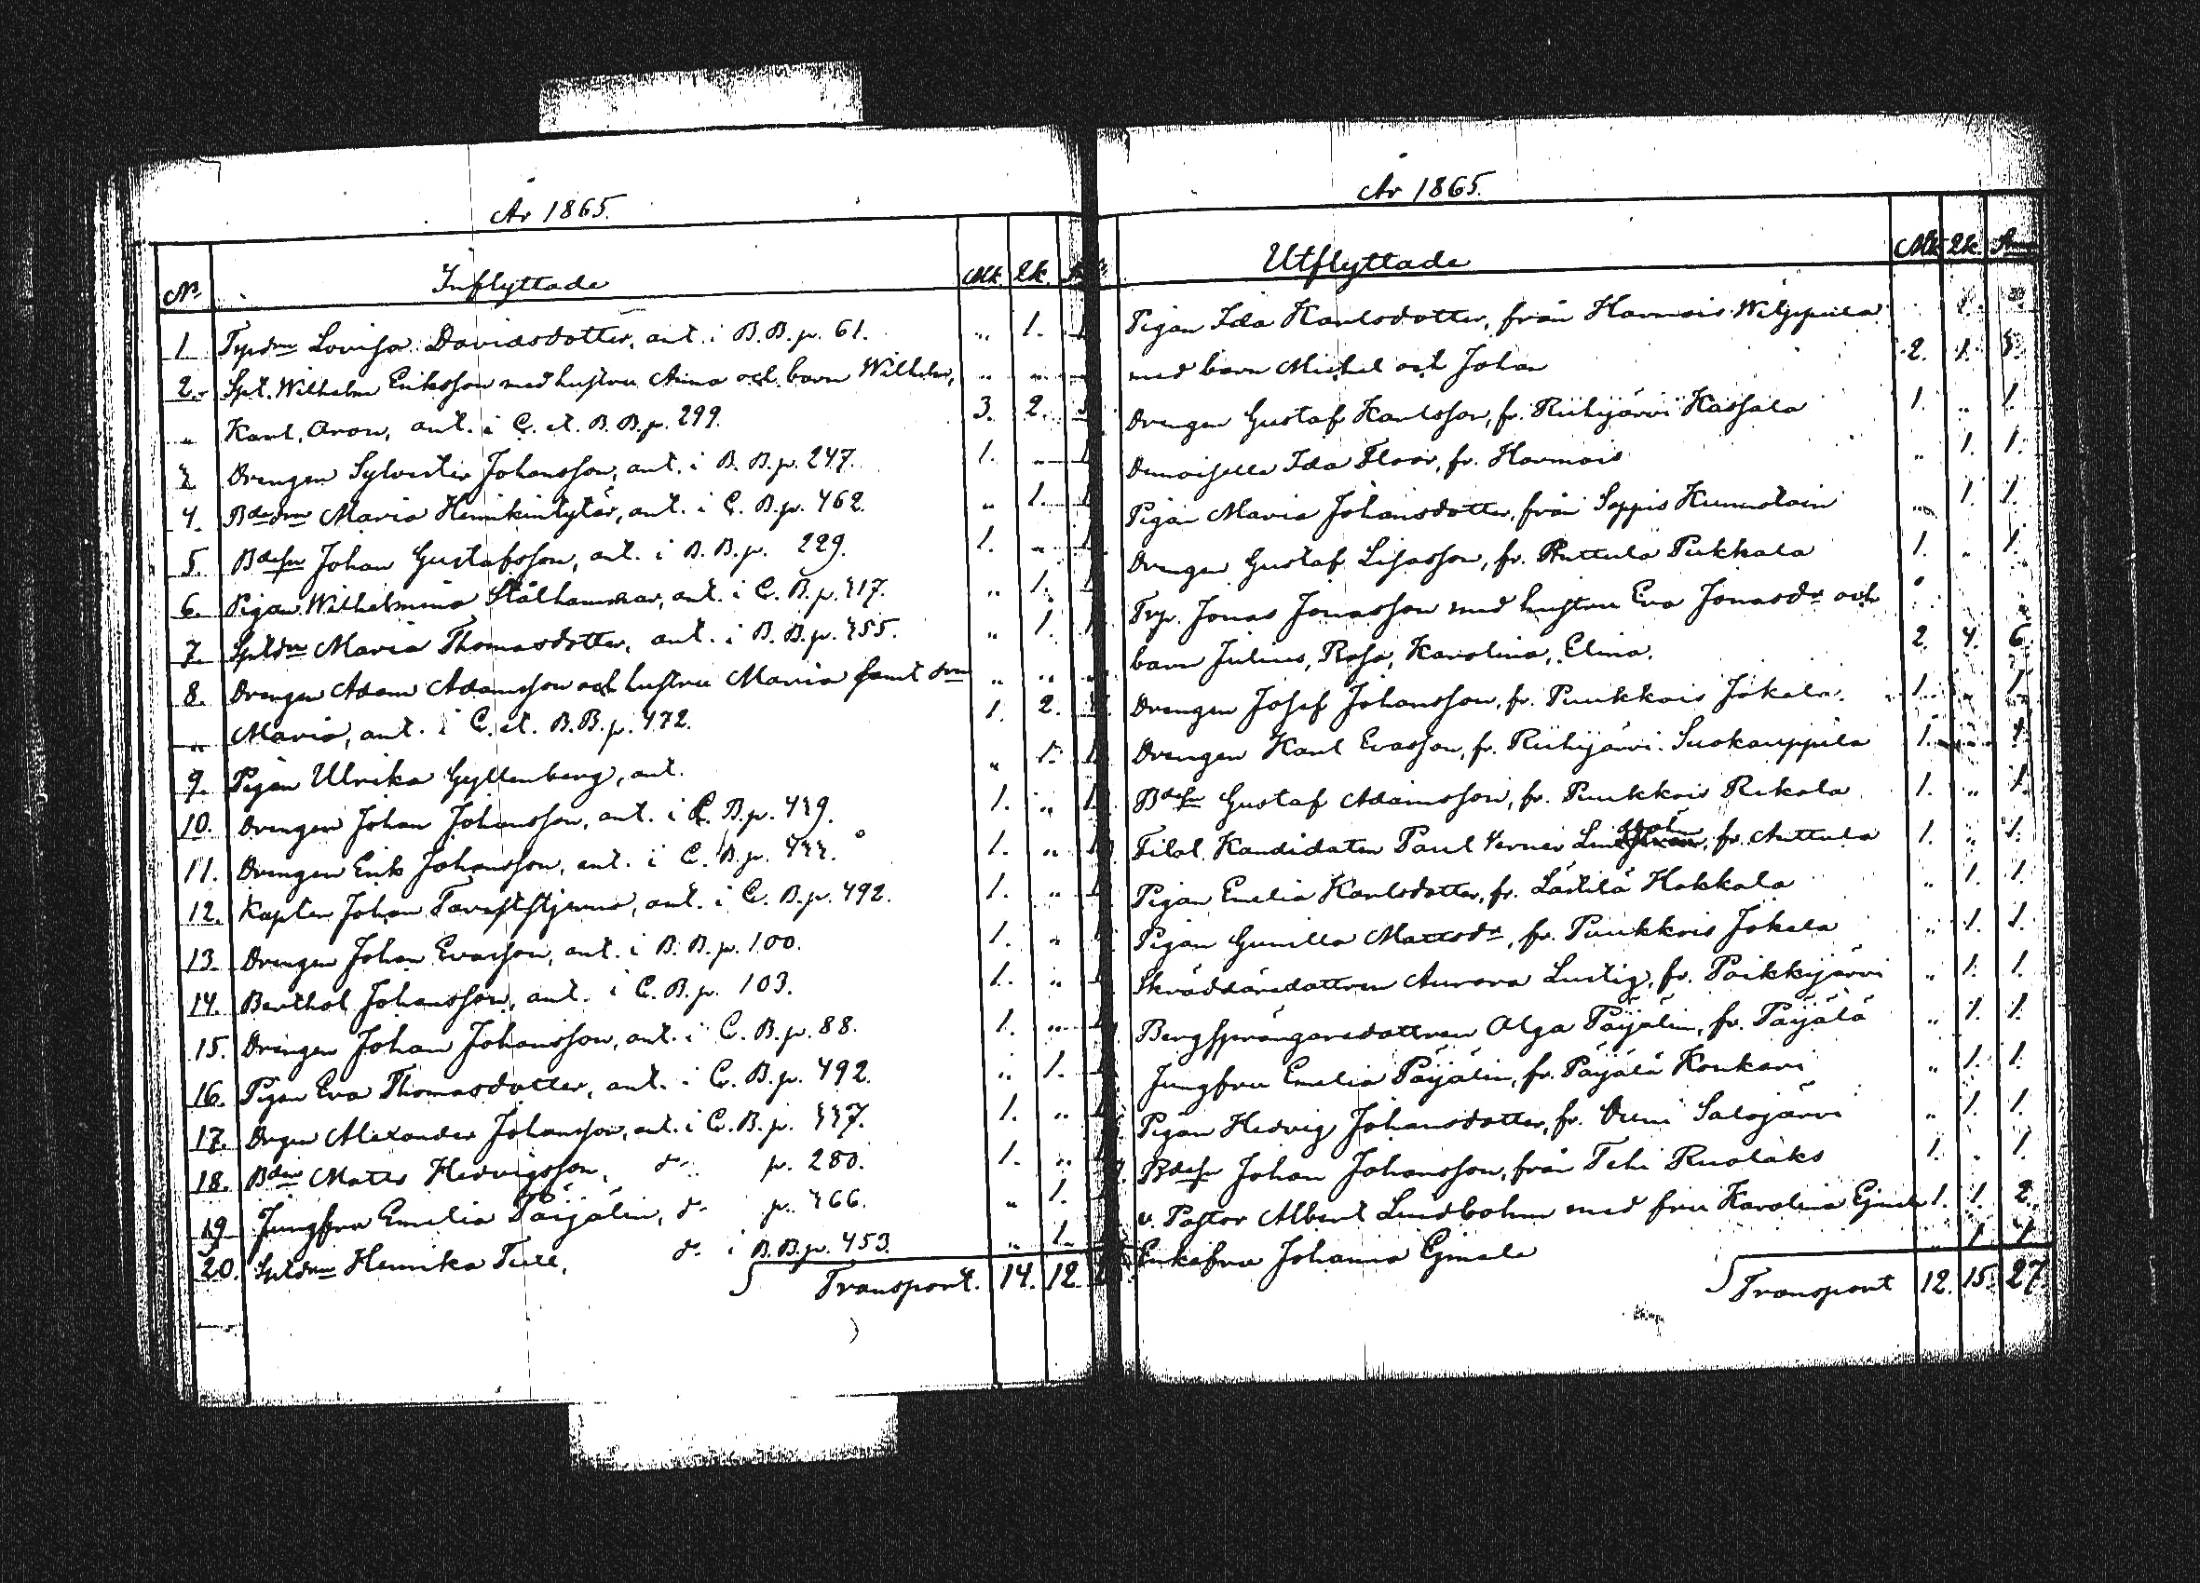 År 1865.
No Inflyttade Mk. Qk.
1 Tpdr Lovisa Davidsdotter, ant. i B.B.p. 61. „ 1.
2. Spt. Wilhelm Eriksson med hustru Anna och barn Wilhelm, „ „
„ Karl, Aron, ant. i C. et. B.B.p. 299. 3. 2.
3 Drengen Sylvester Johansson, ant. i B.B.p. 247. 1. „
4. Bdedr Maria Henrikintytär, ant. i C.B.p. 462. „ 1.
5. Bdesn Johan Gustafsson, ant. i B.B.p. 229. 1. „
6. Pigan Wilhelmina Stålhammar, ant. i C.B.p. 317. „ 1.
7. Spldr Maria Thomasdotter, ant. i B.B.p. 355. „ 1.
8. Drengen Adam Adamsson och hustru Maria samt „ „
„ Maria, ant. i C. et. B.B.p. 472. 1. 2.
9. Pigan Ulrika Gyllenberg, ant. „ 1.
10. Drengen Johan Johansson, ant. i C.B.p. 439. 1. „
11. Drengen Erik Johansson, ant. i C.B.p. 433. 1. „
12. Kapten Johan Tavaststjerna, ant. i C.B.p. 492. 1. „
13. Drengen Johan Evasson, ant. i B.B.p. 100. 1. „
14. Berthol Johansson, ant. i C.B.p. 103. 1. „
15. Drengen Johan Johansson, ant. i C.B.p. 88. 1. „
16. Pigan Eva Thomasdotter, ant. i C.B.p. 492. „ 1.
17. Drgen Alexander Johansson, ant. i C.B.p. 337. 1. „
18. Matts Hedvigsson, do p. 280. 1. „
19 Jungfru Emelia Päijälin, do p. 366. „ 1.
20. Spldr Henrika Ture, do i B.B.p. 453. „ 1.
Transport. 14. 12.
År 1865.
Utflyttade Mk. Qk.
Pigan Ida Karlsdotter, från Harmois Wilppula
med barn Michel och Johan 2. 1. 3.
Drengen Gustaf Karlsson, fr. Riihijärvi Kassala 1. „ 1.
Demoiselle Ida Floor, fr. Harmois „ 1. 1.
Pigan Maria Johansdotter, från Seppis „ 1. 1.
Drengen Gustaf Lisasson, fr. Ruttula Pukkala 1. „ 1.
Trp. Jonas Jonasson med hustru Eva Jonasdr och
barn Julius, Rosa, Karolina, Elina. 2. 4. 6.
Drengen Josef Johansson, fr. Puukkois Jokela. 1. „ 1.
Drengen Karl Evasson, fr. Riihijärvi Suokauppila 1. „ 1.
Bdesn Gustaf Adamsson, fr. Puukkois Rekola 1. „ 1.
Filol. Kandidaten Paul Verner fr. Auttula 1. „ 1.
Pigan Emelia Karlsdotter, fr. Lästilä Hakkala „ 1. 1.
Pigan Gunilla Mattsdr, fr. Puukkois Jokela „ 1. 1.
Skräddaredottren Aurora Lustig, fr. Poikkijärvi „ 1. 1.
Bergsprängaredottren Olga Päijälin, fr. Päijälä „ 1. 1.
Jungfru Emelia Päijälin, fr. Päijälä Koukari „ 1. 1.
Pigan Hedvig Johansdotter, fr. Salojärvi „ 1. 1.
Bdesn Johan Johansson, från Tehi 1. „ 1.
v. Pastor Albert Lindbohm med fru Karolina 1. 1. 2.
Enkefru Johanna „ 1. 1.
Transport 12. 15. 27.